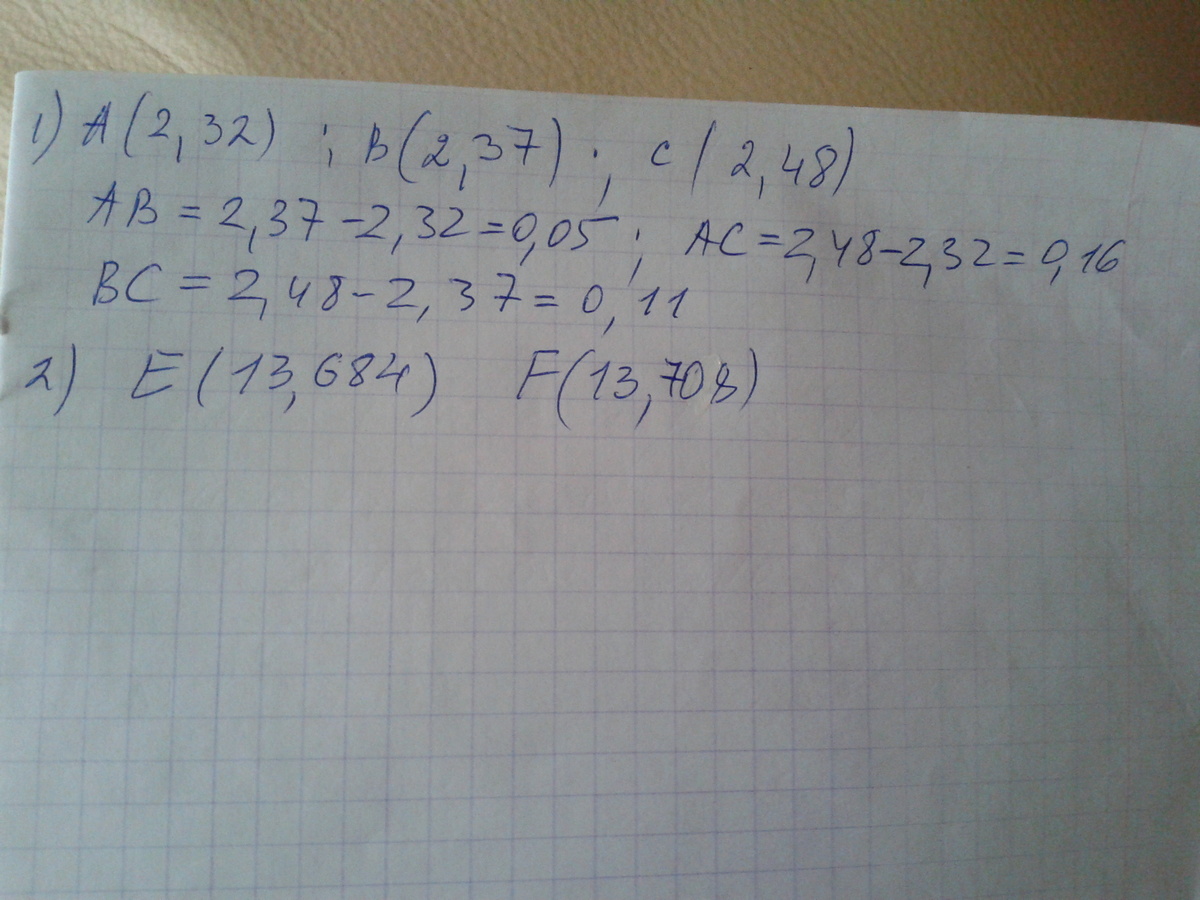 1) A (2,32) ; B (2,37) ; C (2,48)
AB = 2,37 - 2,32 = 0,05 ; AC = 2,48 - 2,32 = 0,16
BC = 2,48 - 2,37 = 0,11
2) E (13,684) F (13,708)